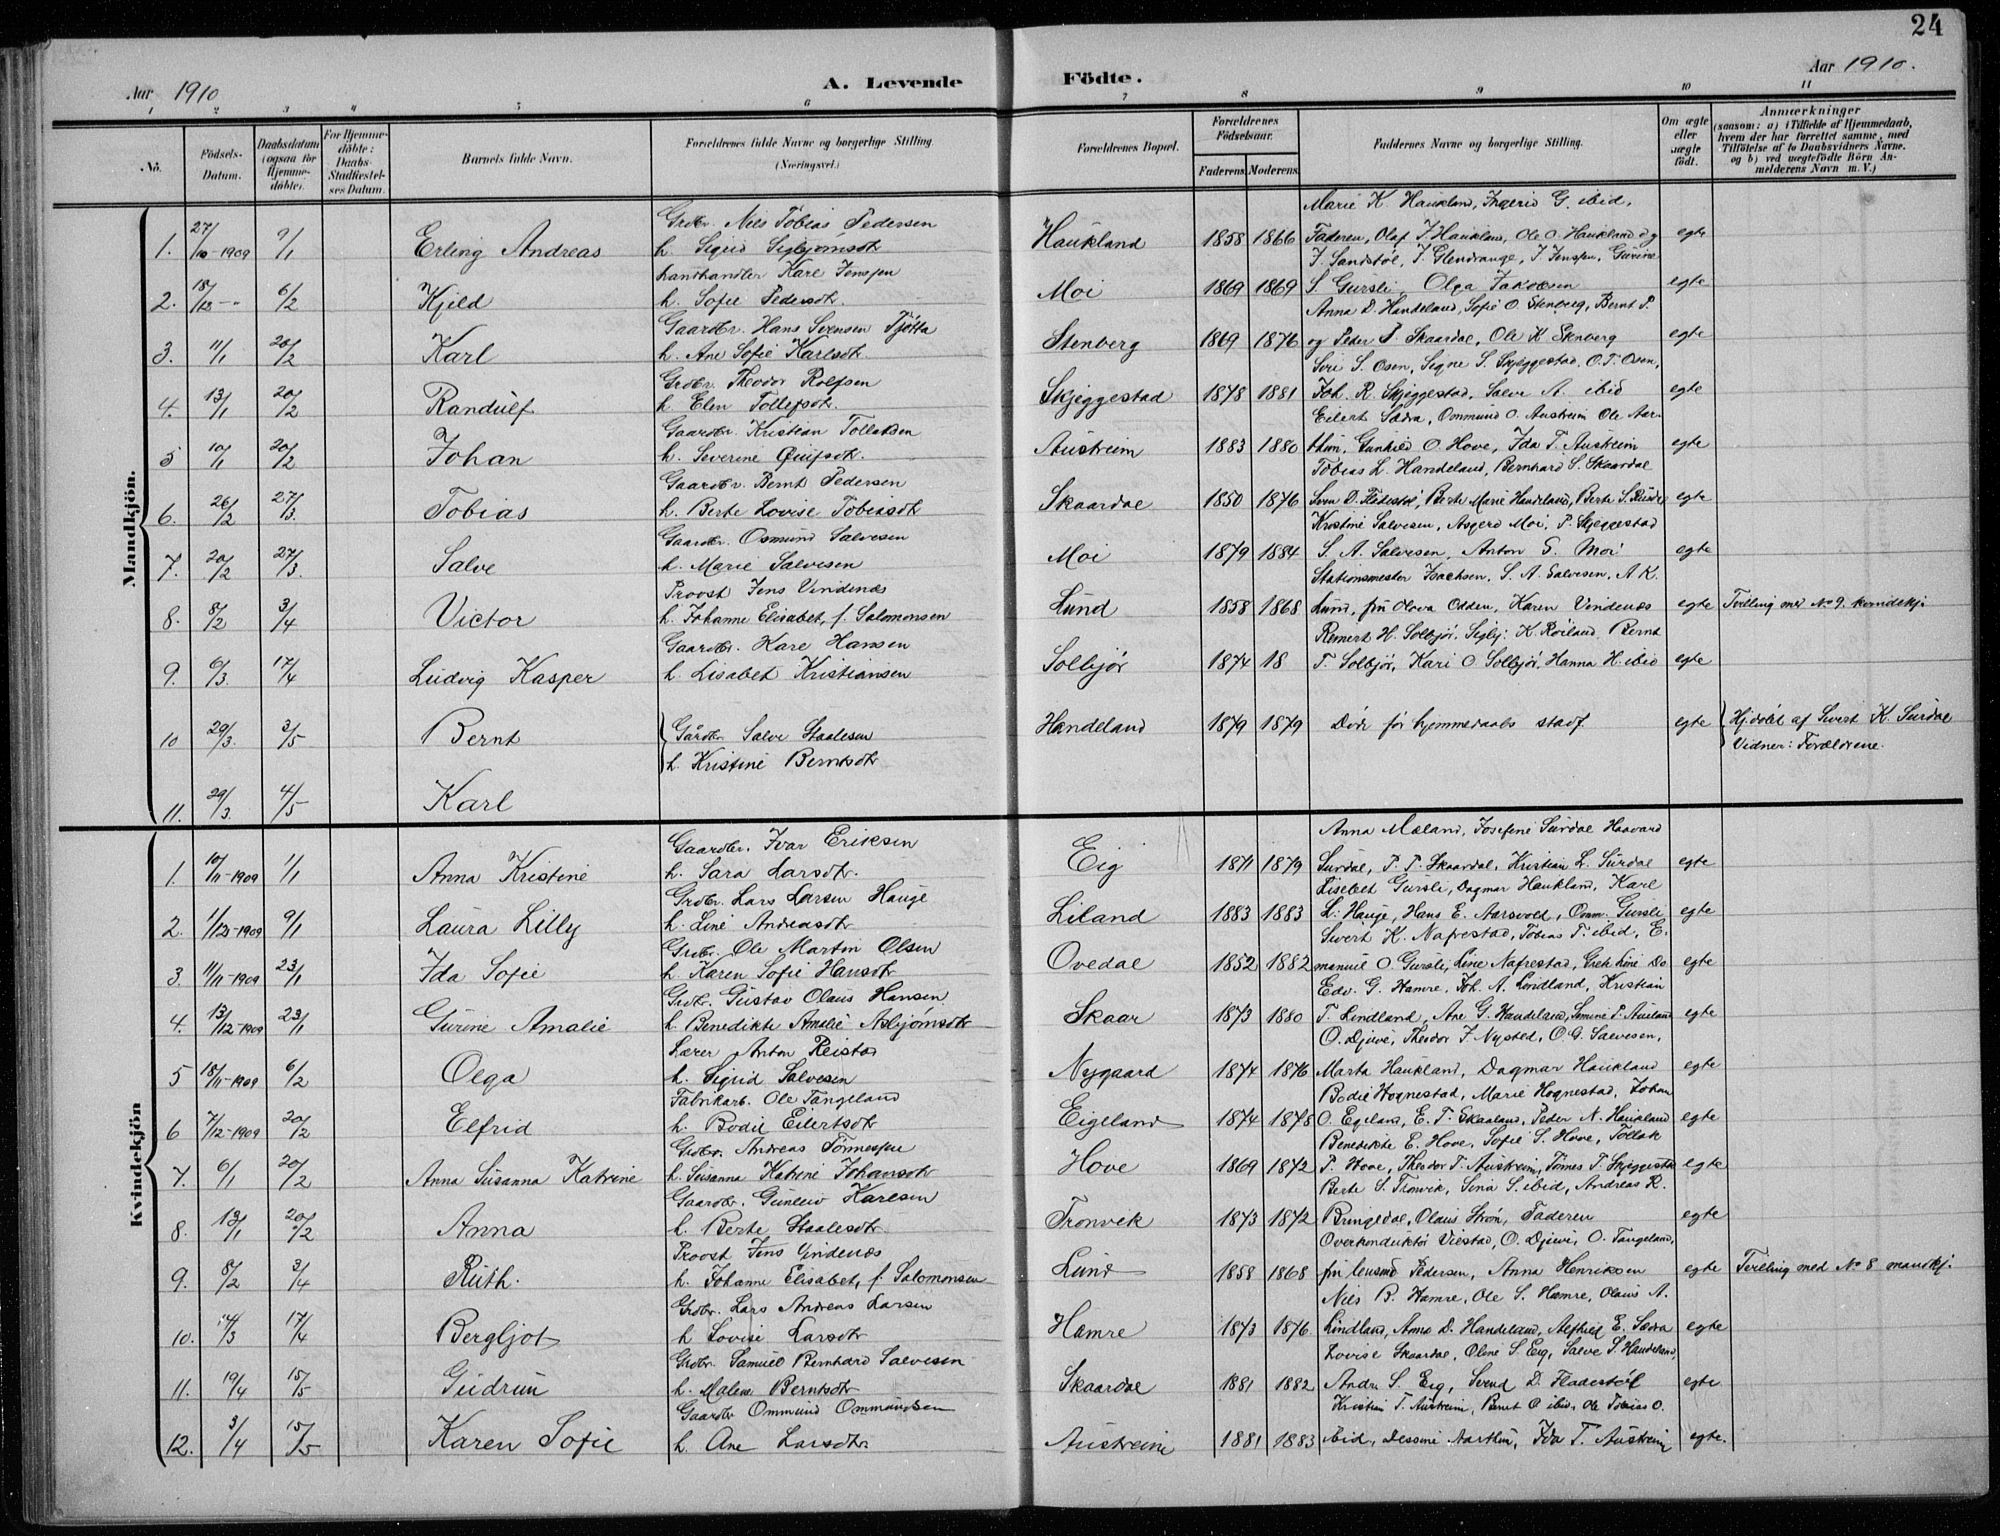 24
Aar 1910
A. Levende Födte.
Aar 1910.
1 2 3 4 5 6 7 8 9 10 11
No.
Födsels-Datum.
Daabsdatum (ogsaa for Hjemmedöbte).
For Hjemmedöbte: Daabs-Stadfæstelses Datum.
Barnets fulde Navn.
Forældrenes fulde Navne og borgerlige Stilling (Næringsvei.)
Forældrenes Bopæl.
Forældrenes Födselsaar.
Faderens. Moderens.
Faddernes Navne og borgerlige Stilling.
Om ægte eller uægte født.
Anmærkninger (saasom: a) i Tilfælde af Hjemmedaab, hvem der har forrettet samme, med Tilföielse af to Daabsvidners Navne. og b) ved uægtefödte Börn Anmelderens Navn m. V.)
Mandkjön.
Marie K. Haukland, Ingerid G. ibid,
1. 27/10-1909 9/1 Erling Andreas Grdbr. Nils Tobias Pedersen h. Sigrid Sigbjørnsdtr Haukland 1858 1866 Faderen, Olaf J Haukland, Ole O. Haukland og egte
J. Sandstøl, J. Glendrange, J. Jenssen, Gurine
2. 18/12 -- 6/2 Kjeld Landhandler Karl Jenssen h. Sofie Pedersdtr. Moi 1869 1869 S Gursli, Olga Jakobsen egte
Anna D. Handeland, Sofie O. Stenberg, Bernt P.
3. 11/1 20/2 Karl Gaardbr. Hans Svensen Tjøtta h. Ane Sofie Karlsdtr. Stenberg 1869 1876 og Peder P. Skaardal, Ole K Stenberg egte
Siri S. Osen, Signe S. Skjeggestad, O. T. Osen,
4. 13/1 20/2 Randulf Grdbr. Theodor Rolfsen h Elen Tollefsdtr. Skjeggestad 1878 1881 Joh. R. Skjeggestad, Salve A. ibid egte
Eilert Sædra, Ommund O. Austreim Ole Aar-
5 10/1 20/2 Johan Gaardbr. Kristian Tollaksen h. Severine Guifsdtr. Austreim 1883 1880 thun, Gunhild O. Hove, Ida T. Austreim egte
Tobias L. Handeland, Bernhard S. Skaardal
6. 26/2 27/3. Tobias Gaardbr. Bernt Pedersen h. Berte Lovise Tobiasdtr Skaardal 1850 1876 Sven D. Fladestøl, Berte Marie Handeland, Berte S. egte
Kristine Salvesen, Asgerd Moi, P. Skjeggestad
7. 20/2 27/3. Salve Gaardbr. Osmund Salvesen h. Marie Salvesen Moi 1879 1884 S. A. Salvesen, Anton S. Moi egte
Stationsmester Isachsen, S. A. Salvesen, A K.
8. 8/2 3/4 Victor Provst Jens Vindenæs h. Johanne Elisabet, f. Salomonsen Lund 1858 1868 Lund, frk Olova Odden, Karen Vindenæs egte Tvilling med No 9. kvindekj.
Reinert H. Solbjør, Sigbj. K. Røiland, Bernt
9. 6/3 17/4 Ludvig Kasper Gaardbr. Karl Hansen h. Lisabet Kristiansen Solbjør 1874 18 T. Solbjør, Kari O Solbjør, Hanna H. ibid egte
10 29/3. 3/5 Bernt Gårdbr Salve Staalesen h. Kristine Berntsdtr Handeland 1879 1879 Død før hjemmedaabs stadf. egte Hjdøbt af Sivert K. Surdal Vidner: Forældrene.
11. 29/3. 4/5 Karl
Kvindekjön
Anna Mæland, Josefine Surdal Haavard
1. 10/11-1909 1/1 Anna Kristine Gaardbr. Ivar Eriksen h. Sara Larsdtr. Eig 1871 1879 Surdal, P. P. Skaardal, Kristian L. Surdal egte
Lisebet Gursli, Dagmar Haukland, Karl
2. 1/12-1909 9/1 Laura Lilly Grdbr. Lars Larsen Hauge h. Line Andreasdtr Liland 1883 1883 L. Hauge, Hans E. Aarsvold, Omm. Gursli egte
Sivert K. Nafrestad, Tobias T. ibid, E.
3 11/11-1909 23/1 Ida Sofie Grdbr. Ole Martin Olsen h Karen Sofie Hansdtr Ovedal 1852 1882 manuel O Gursli, Line Nafrestad, Grete Line Do egte
Edv. G. Hamre, Joh. A. Lindland, Kristian
4. 13/12-1909 23/1 Gurine Amalie Grdbr. Gustav Olaus Hansen. h. Benedikte Amalie Asbjørnsdtr Skaar 1873 1880 T. Lindland, Ane G. Handeland, egte
O. Djuve, Theodor J. Nysted, O. G. Salvesen,
5 18/11-1909 6/2 Olga Lærer Anton Reistad h. Sigrid Salvesen Nygaard 1874 1876 Marta Haukland, Dagmar Haukland egte
Bodil Hognestad, Marie Hognestad, Johan
6 7/12-1909 20/2 Elfrid Fabrikarb. Ole Tangeland h. Bodil Eilertsdtr Eigeland 1874 1878 O. Egeland, E. T. Skaaland, Peder N. Haukland egte
Benedikte E. Hove, Sofie S. Hove, Tollak
7. 6/1 20/2 Anna Susanna Katrine Grdbr. Andreas Tønnessen h. Susanna Katrine Johansdtr Hove 1869 1872 P. Hove, Theodor T. Austreim, Tønnes T. Skjeggestad egte
Berte S. Tronvik, Sina S. ibid, Andreas R.
8. 13/1 20/2 Anna Gaardbr. Gunleiv Karlsen h. Berte Staalesdtr Tronvik 1873 1872 Bringedal, Olaus Strøm, Faderen egte
Overkonduktør Viestad, O. Djuve, O. Tangeland,
9. 8/2 3/4 Ruth. Provst Jens Vindenæs h. Johanne Elisabet, f. Salomonsen Lund 1858 1868 frk Pedersen, Anna Henriksen egte Tvilling med No 8 mandkj.
Nils B. Hamre, Ole S. Hamre, Olaus A.
10. 14/3 17/4 Bergljot Grdbr. Lars Andreas Larsen h Lovise Larsdtr Hamre 1873 1876 Lindland, Anna D. Handeland, Alfhild E. Sædra egte
Lovise Skaardal, Oline S. Eig, Salve S. Handeland,
11. 19/4 15/5 Gudrun Grdbr. Samuel Bernhard Salvesen h. Malene Berntsdtr Skaardal 1881 1882 Andr. S. Eig, Svend D. Fladestøl egte
Kristian T. Austreim, Bernt O ibid, Ole Tobias O.
12. 3/4 15/5 Karen Sofie Gaardbr Ommund Ommundsen h. Ane Larsdtr Austreim 1881 1883 ibid, Dessine Aarthun, Ida T. Austreim egte.